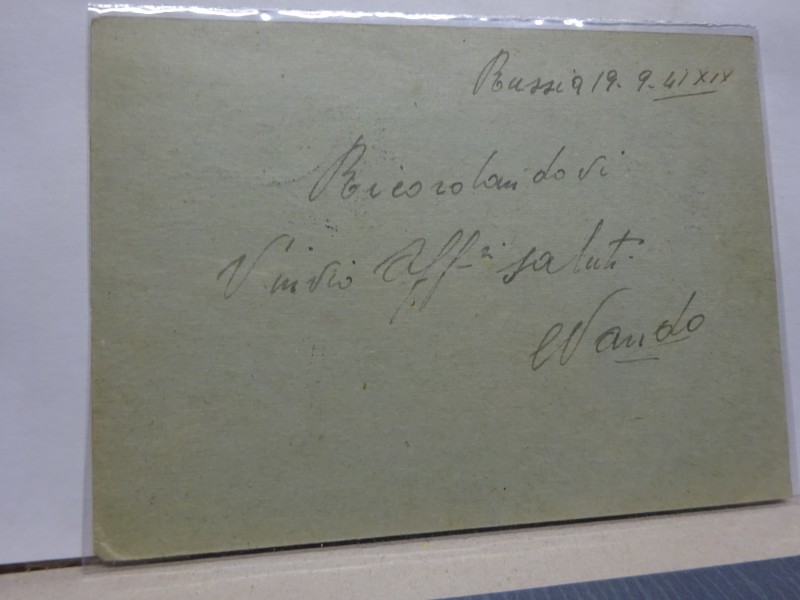 Russia 19. 9. 41 XIX
Ricorolandovi
V'invio Aff-i saluti.
Wando